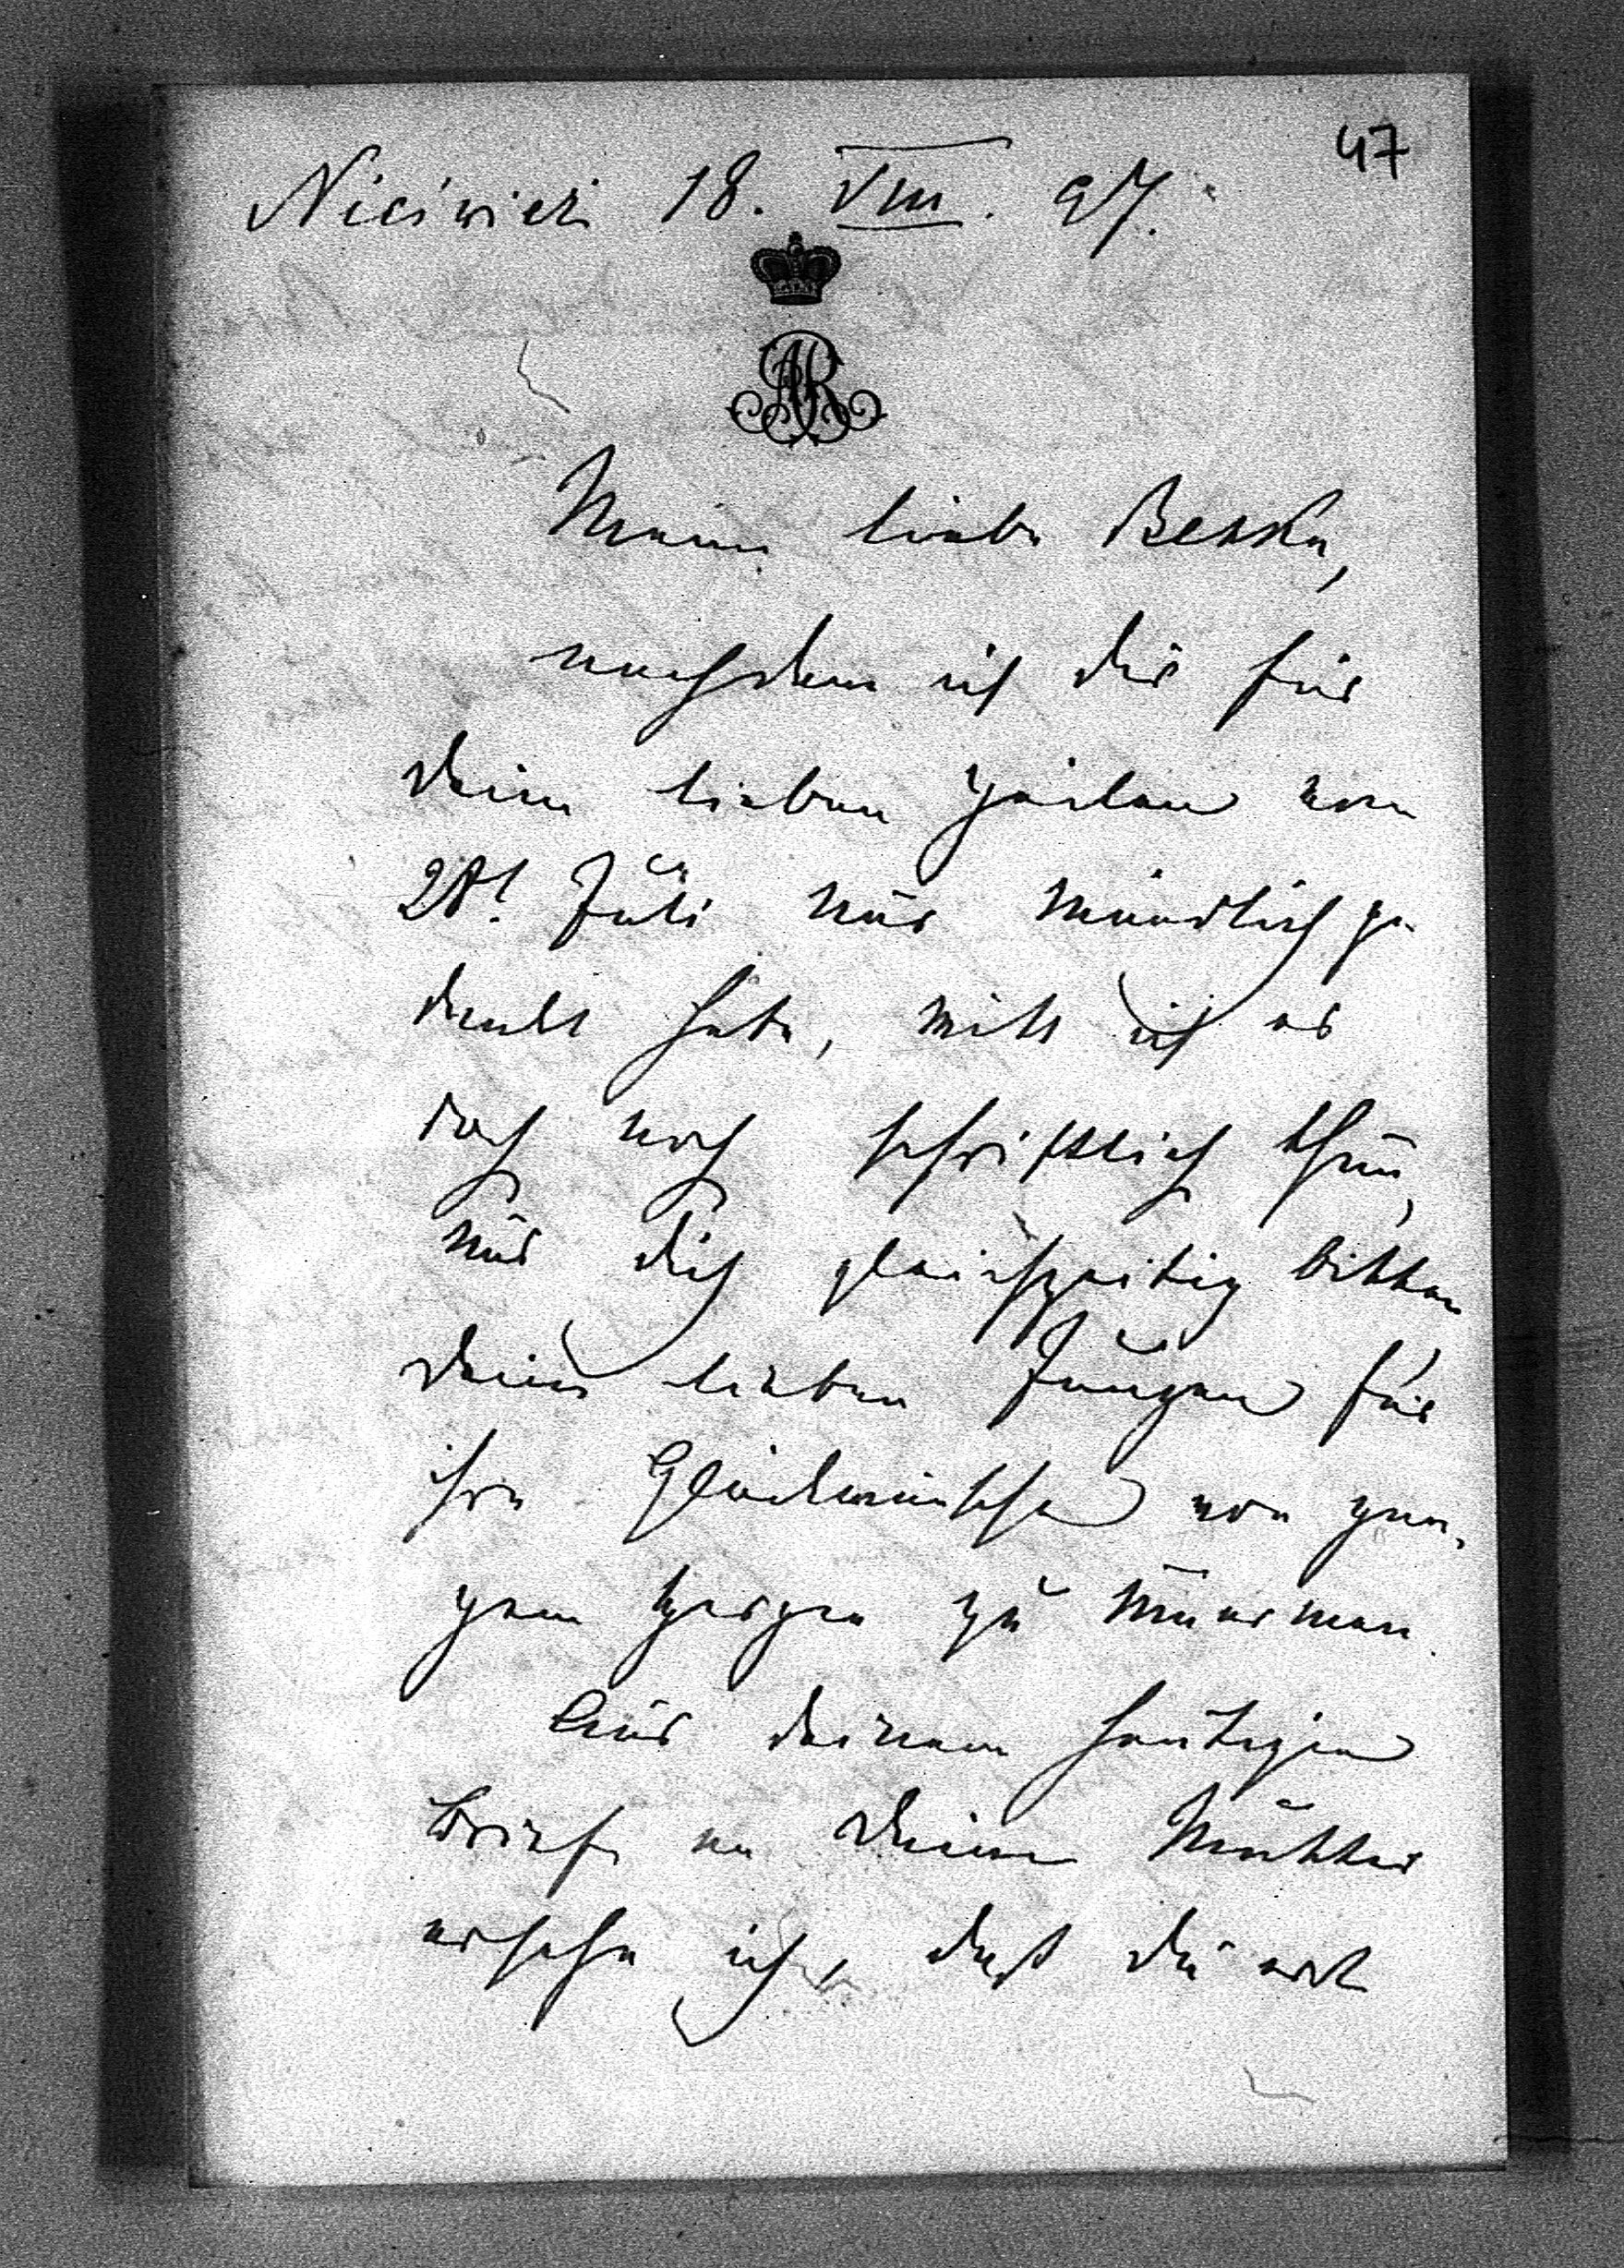 47
Nieświeź 18. VIII. 97.
AR
Meine liebe Betka,
nachdem ich dir für
deine lieben Zeilen vom
28t Juli nur mündlich ge-
dankt habe, will ich es
doch noch schriftlich thun,
und dich gleichzeitig bitten
deine lieben Jungen für
ihre Glückwünsche von gan-
zem Herzen zu umarmen.
Aus deinem heutigen
Briefe an deine Mutter
ersehe ich, daß du erst